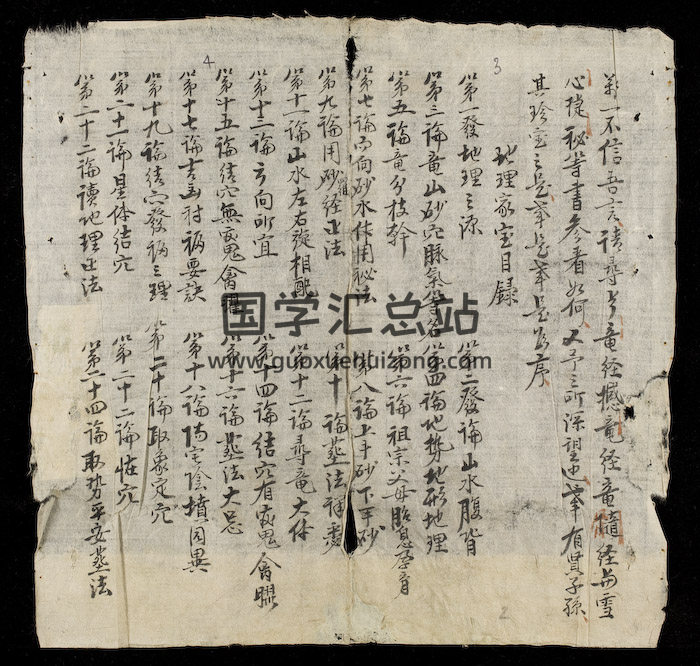 若一不信吾言請尋乎竜経撼竜経竜髓経与雪
心捷秘等書参看如何又予之所深望也幸有賢子孫
其珍宝之是幸是幸是為序
地理家宝目録
第一發地理之源 第二發論山水腹背
第三論竜山砂穴脉氣等名 第四論地勢地形地理
第五論竜分枝幹 第六論祖宗父母胎息孕育
第七論内向砂水休用秘法 第八論上手砂下手砂
第九論用砂羅経正法 第十論葬法禪要
第十一論山水左右旋相配 第十二論尋竜大体
第十三論方向所宜 第十四論結穴有衰鬼會曜
第十五論結穴無衰鬼會曜 第十六論葬法大忌
第十七論吉凶封禍要訣 第十八論陽宅陰墳同異
第十九論結穴發禍之理 第二十論取象定穴
第二十一論星体結穴 第二十二論怪穴
第二十三論讀地理正法 第二十四論取勢平安葬法
3
4
2
国学汇总站
www.guoxuehuizong.com